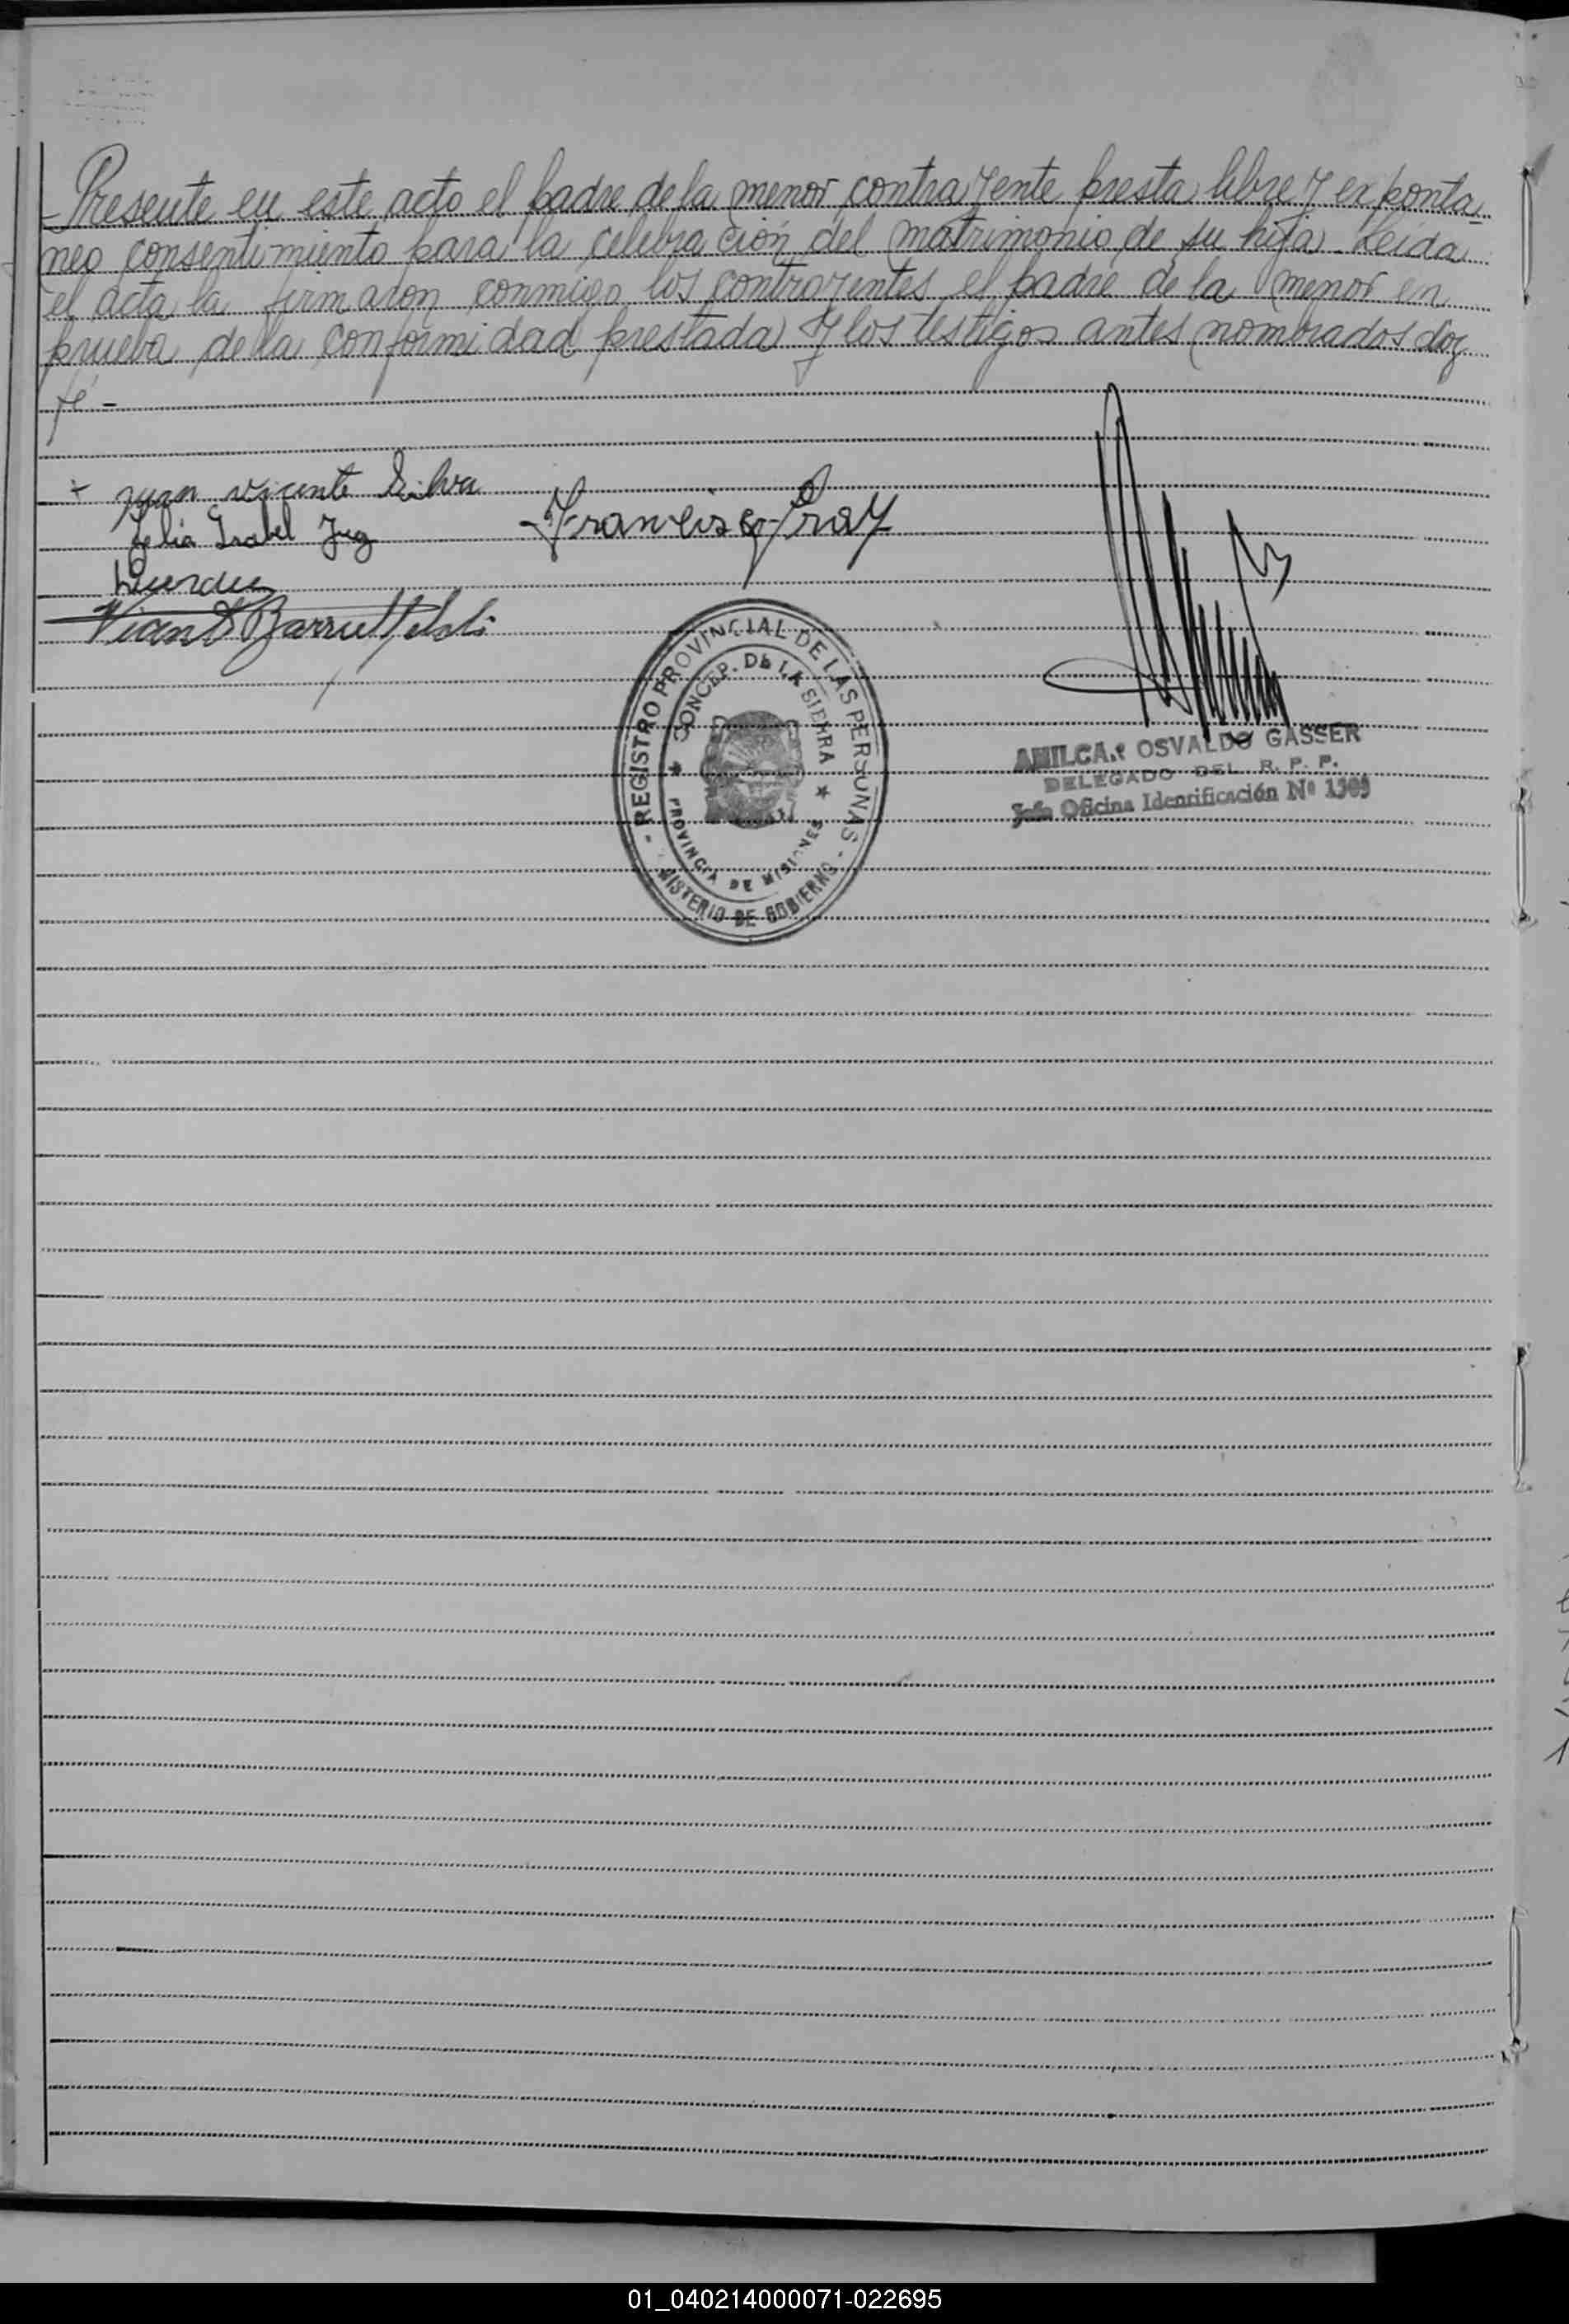 Presente en este acto el padre de la menor contrayente presta libre y exponta-
neo consentimiento para la celebración del matrimonio de su hija. Leida
el acta la firmaron conmigo los contrayentes el padre de la menor en
prueba de la conformidad prestada y los testigos antes nombrados doy
fé-
+ Juan Vicente Silva
Isabel
Francisco
REGISTRO PROVINCIAL DE LAS PERSONAS
CONCEP. DE LA SIERRA
PROVINCIA DE MISIONES
MISTERIO DE GOBIERNO
AMILCAR OSVALDO GASSER
DELEGADO DEL R. P. P.
Jefe Oficina Identificación Nº 1309
01_040214000071-022695